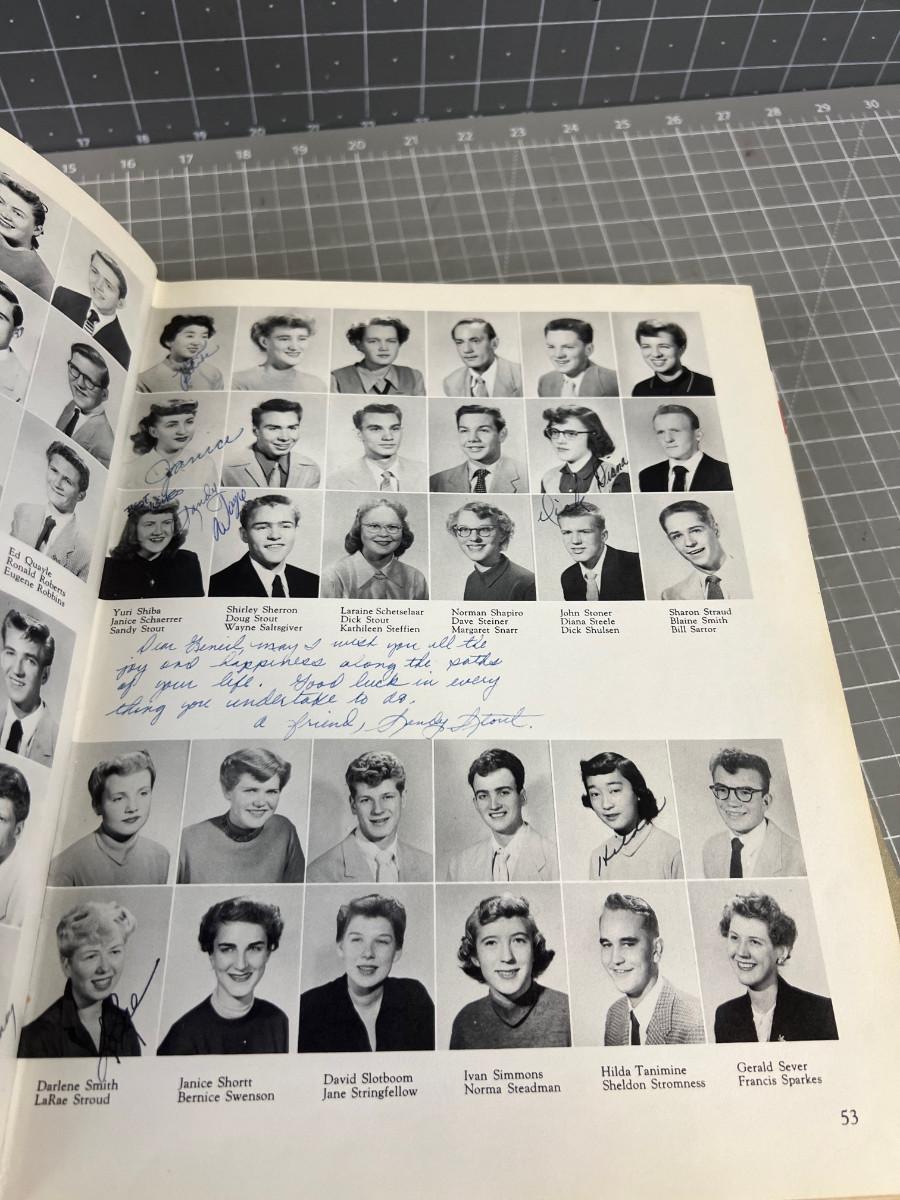 15 16 17 18 19 20 21 22 23 24 25 26 27 28 29 30
17 18 19 20 21 22 23
Janice
BEST
Sandy
Wayne
Dick Diana
Ed Quayle
Ronald Roberts
Eugene Robbins
Yuri Shiba Shirley Sherron Laraine Schetselaar Norman Shapiro John Stoner Sharon Straud
Janice Schaerrer Doug Stout Dick Stout Dave Steiner Diana Steele Blaine Smith
Sandy Stout Wayne Saltsgiver Kathileen Steffien Margaret Snarr Dick Shulsen Bill Sartor
Dear Geneil, may I wish you all the
joy and happiness along the paths
of your life. Good luck in every
thing you undertake to do.
a friend, Sandy Stout.
Hilda
Darlene Smith Janice Shortt David Slotboom Ivan Simmons Hilda Tanimine Gerald Sever
LaRae Stroud Bernice Swenson Jane Stringfellow Norma Steadman Sheldon Stromness Francis Sparkes
53